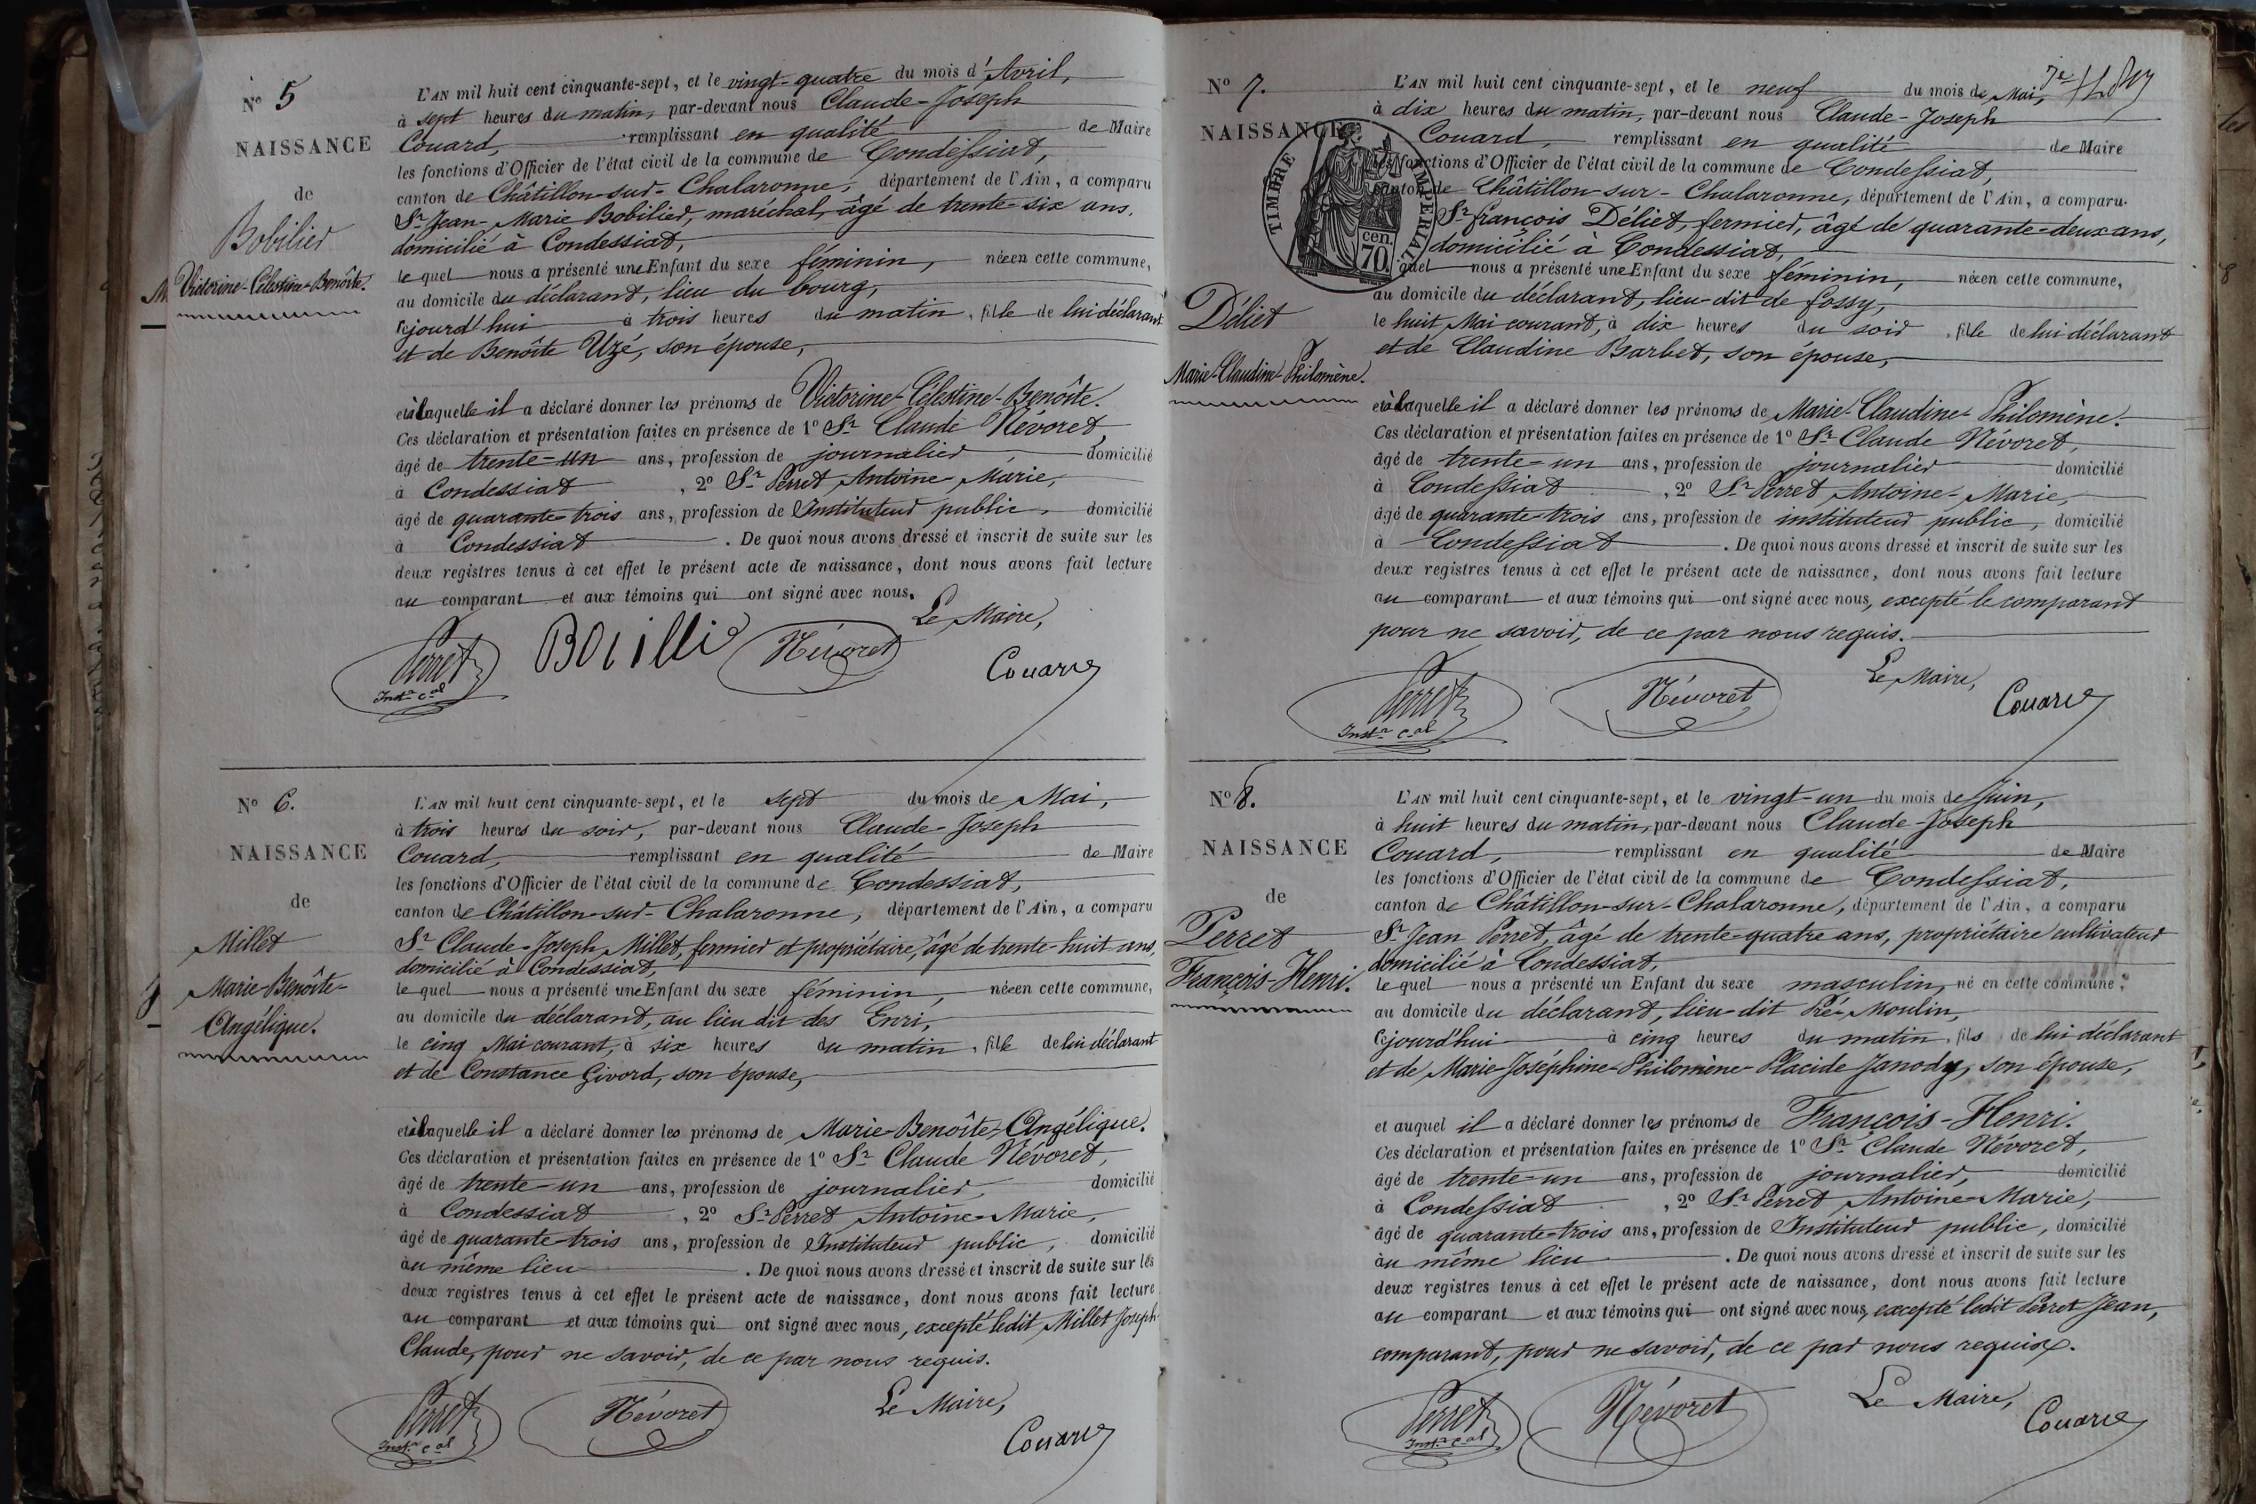 N° 5
NAISSANCE
de
Bobilier
Victorine-Célestine-Benoîte.
L'AN mil huit cent cinquante-sept, et le vingt-quatre du mois d'Avril,
à sept heures du matin, par-devant nous Claude-Joseph
Couard, remplissant en qualité de Maire
les fonctions d'Officier de l'état civil de la commune de Condessiat,
canton de Châtillon-sur-Chalaronne, département de l'Ain, a comparu
Sr Jean-Marie Bobilier, maréchal, âgé de trente-six ans,
domicilié à Condessiat,
lequel nous a présenté une Enfant du sexe féminin, née en cette commune,
au domicile du déclarant, lieu du bourg,
cejourd'hui à trois heures du matin, fille de lui déclarant
et de Benoîte Uzé, son épouse,
et à laquelle il a déclaré donner les prénoms de Victorine-Célestine-Benoîte.
Ces déclaration et présentation faites en présence de 1° Sr Claude Névoret,
âgé de trente-un ans, profession de journalier domicilié
à Condessiat, 2° Sr Perret Antoine-Marie,
âgé de quarante-trois ans, profession de Instituteur public, domicilié
à Condessiat. De quoi nous avons dressé et inscrit de suite sur les
deux registres tenus à cet effet le présent acte de naissance, dont nous avons fait lecture
au comparant et aux témoins qui ont signé avec nous.
Le Maire,
Perret Bouillie Névoret Couard
Instr cal
N° 6.
NAISSANCE
de
Millet
Marie-Benoîte-
Angélique.
L'AN mil huit cent cinquante-sept, et le sept du mois de Mai,
à trois heures du soir, par-devant nous Claude-Joseph
Couard, remplissant en qualité de Maire
les fonctions d'Officier de l'état civil de la commune de Condessiat,
canton de Châtillon-sur-Chalaronne, département de l'Ain, a comparu
Sr Claude-Joseph Millet, fermier et propriétaire, âgé de trente-huit ans,
domicilié à Condessiat,
lequel nous a présenté une Enfant du sexe féminin, née en cette commune,
au domicile du déclarant, au lieu dit des Enri,
le cinq Mai courant, à six heures du matin, fille de lui déclarant
et de Constance Givord, son épouse,
et à laquelle il a déclaré donner les prénoms de Marie-Benoîte-Angélique.
Ces déclaration et présentation faites en présence de 1° Sr Claude Névoret,
âgé de trente-un ans, profession de journalier, domicilié
à Condessiat, 2° Sr Perret Antoine-Marie,
âgé de quarante-trois ans, profession de Instituteur public, domicilié
au même lieu. De quoi nous avons dressé et inscrit de suite sur les
deux registres tenus à cet effet le présent acte de naissance, dont nous avons fait lecture
au comparant et aux témoins qui ont signé avec nous, excepté ledit Millet Joseph-
Claude, pour ne savoir, de ce par nous requis.
Le Maire,
Perret Névoret Couard
Instr cal
N° 7.
NAISSANCE
Déliet
Marie-Claudine-Philomène.
TIMBRE IMPERIAL
70 cen.
L'AN mil huit cent cinquante-sept, et le neuf du mois de Mai,
à dix heures du matin, par-devant nous Claude-Joseph
Couard, remplissant en qualité de Maire
les fonctions d'Officier de l'état civil de la commune de Condessiat,
canton de Châtillon-sur-Chalaronne, département de l'Ain, a comparu
Sr François Déliet, fermier, âgé de quarante-deux ans,
domicilié a Condessiat,
lequel nous a présenté une Enfant du sexe féminin, née en cette commune,
au domicile du déclarant, lieu-dit de Fossy,
le huit Mai courant, à dix heures du soir, fille de lui déclarant
et de Claudine Barbet, son épouse,
et à laquelle il a déclaré donner les prénoms de Marie-Claudine-Philomène.
Ces déclaration et présentation faites en présence de 1° Sr Claude Névoret,
âgé de trente-un ans, profession de journalier domicilié
à Condessiat, 2° Sr Perret Antoine-Marie,
âgé de quarante-trois ans, profession de instituteur public, domicilié
à Condessiat. De quoi nous avons dressé et inscrit de suite sur les
deux registres tenus à cet effet le présent acte de naissance, dont nous avons fait lecture
au comparant et aux témoins qui ont signé avec nous, excepté le comparant
pour ne savoir, de ce par nous requis.
Le Maire,
Perret Névoret Couard
Instr cal
N° 8.
NAISSANCE
de
Perret
François-Henri.
L'AN mil huit cent cinquante-sept, et le vingt-un du mois de Juin,
à huit heures du matin, par-devant nous Claude-Joseph
Couard, remplissant en qualité de Maire
les fonctions d'Officier de l'état civil de la commune de Condessiat,
canton de Châtillon-sur-Chalaronne, département de l'Ain, a comparu
Sr Jean Perret, âgé de trente-quatre ans, propriétaire cultivateur
domicilié à Condessiat,
lequel nous a présenté un Enfant du sexe masculin, né en cette commune,
au domicile du déclarant, lieu-dit Pré-Moulin,
cejourd'hui à cinq heures du matin, fils de lui déclarant
et de Marie-Joséphine-Philomène-Placide Janody, son épouse,
et auquel il a déclaré donner les prénoms de François-Henri.
Ces déclaration et présentation faites en présence de 1° Sr Claude Névoret,
âgé de trente-un ans, profession de journalier, domicilié
à Condessiat, 2° Sr Perret Antoine-Marie,
âgé de quarante-trois ans, profession de Instituteur public, domicilié
au même lieu. De quoi nous avons dressé et inscrit de suite sur les
deux registres tenus à cet effet le présent acte de naissance, dont nous avons fait lecture
au comparant et aux témoins qui ont signé avec nous, excepté ledit Perret Jean,
comparant, pour ne savoir, de ce par nous requis.
Le Maire,
Perret Névoret Couard
Instr cal